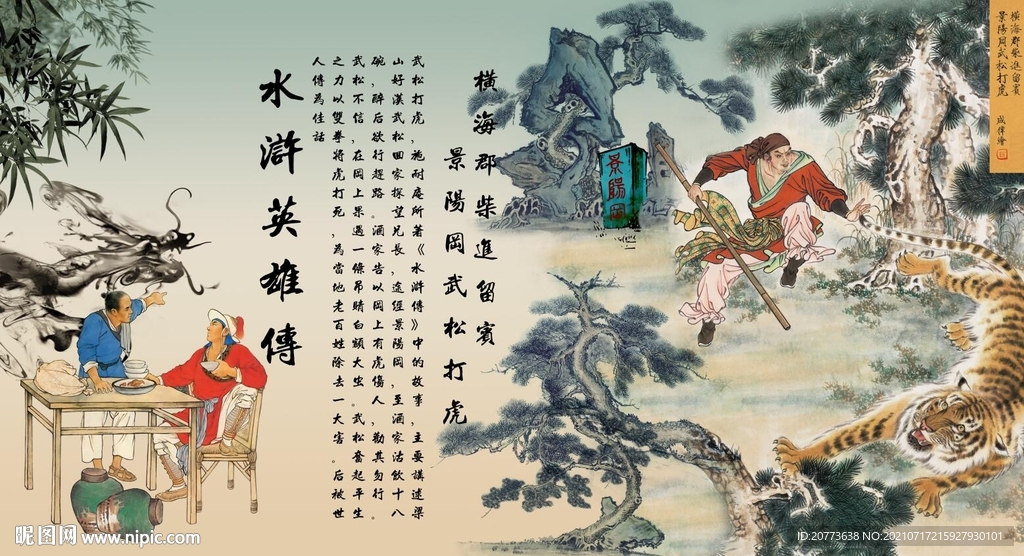 橫海郡柴進留賓
景陽岡武松打虎
成偉繪
景陽岡
橫海郡柴進留賓
景陽岡武松打虎
武松打虎，施耐庵所著《水滸傳》中的故事，主要講述梁
山好漢武松回家探望兄長，途徑景陽岡，至酒家沽飲十八
碗，醉后欲行趕路。酒家告以岡上有虎傷人，勸其勿行。
武松不信，在岡上果遇一條吊睛白額大虫。武松奮起平生
之力以雙拳將虎打死，為當地老百姓除去一大害。后被世
人傳為佳話
水滸英雄傳
昵图网 www.nipic.com
ID:20773638 NO:20210717215927930101